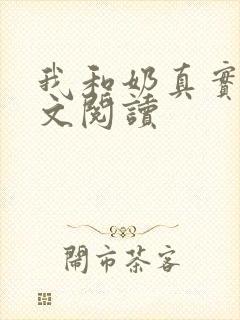 我和奶真實
文閱讀
鬧市茶客